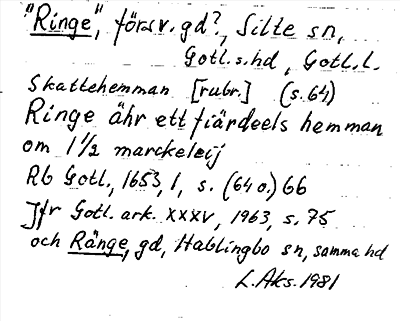 "Ringe", försv. gd?, Silte sn,
Gotl. s. hd, Gotl. l.
Skattehemman [rubr.] (s. 64)
Ringe ähr ett fiärdeels hemman
om 1 1/2 marckeleij
Rb Gotl., 1653, 1, s. (64 o.) 66
Jfr Gotl. ark. XXXV, 1963, s. 75
och Ränge, gd, Hablingbo sn, samma hd
L. Aks. 1981